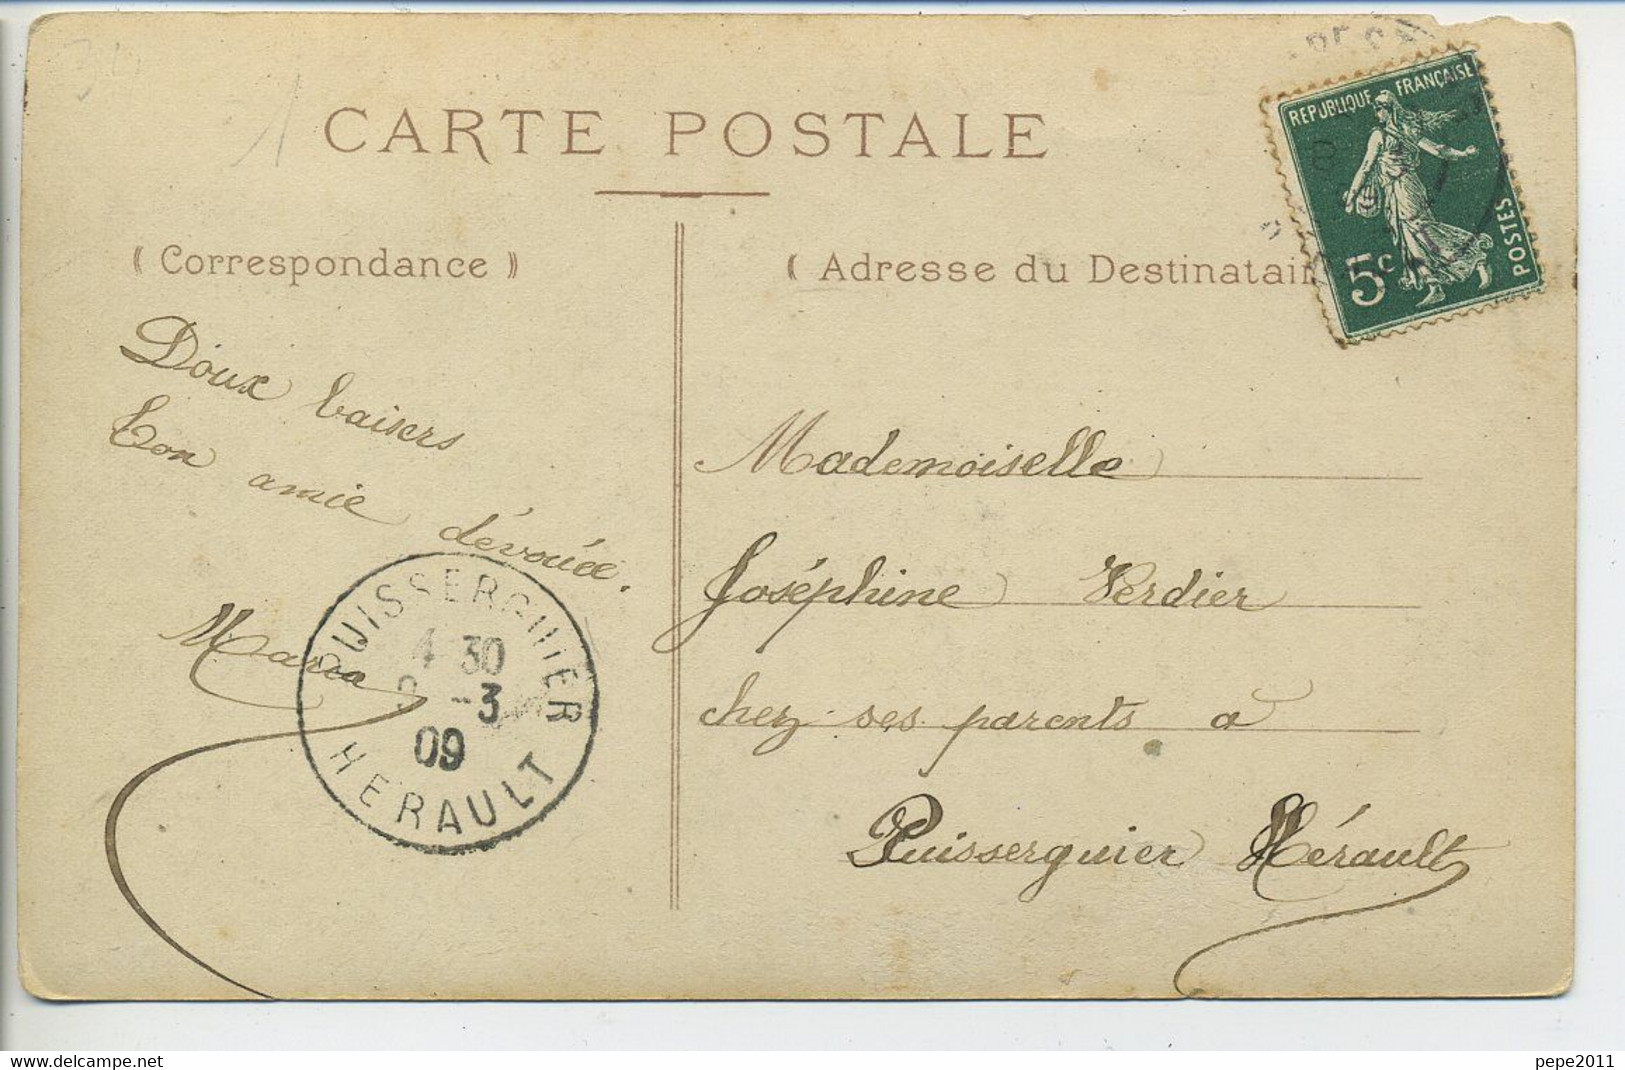 34
1
CARTE POSTALE
( Correspondance )
( Adresse du Destinatair
REPUBLIQUE FRANÇAISE
POSTES
5c
Doux baisers
Ton amie dévouée.
Maria
PUISSERGUIER
4 30
-3
09
HERAULT
Mademoiselle
Joséphine Verdier
chez ses parents a
Puisserguier Hérault
http://www.delcampe.net
pepe2011